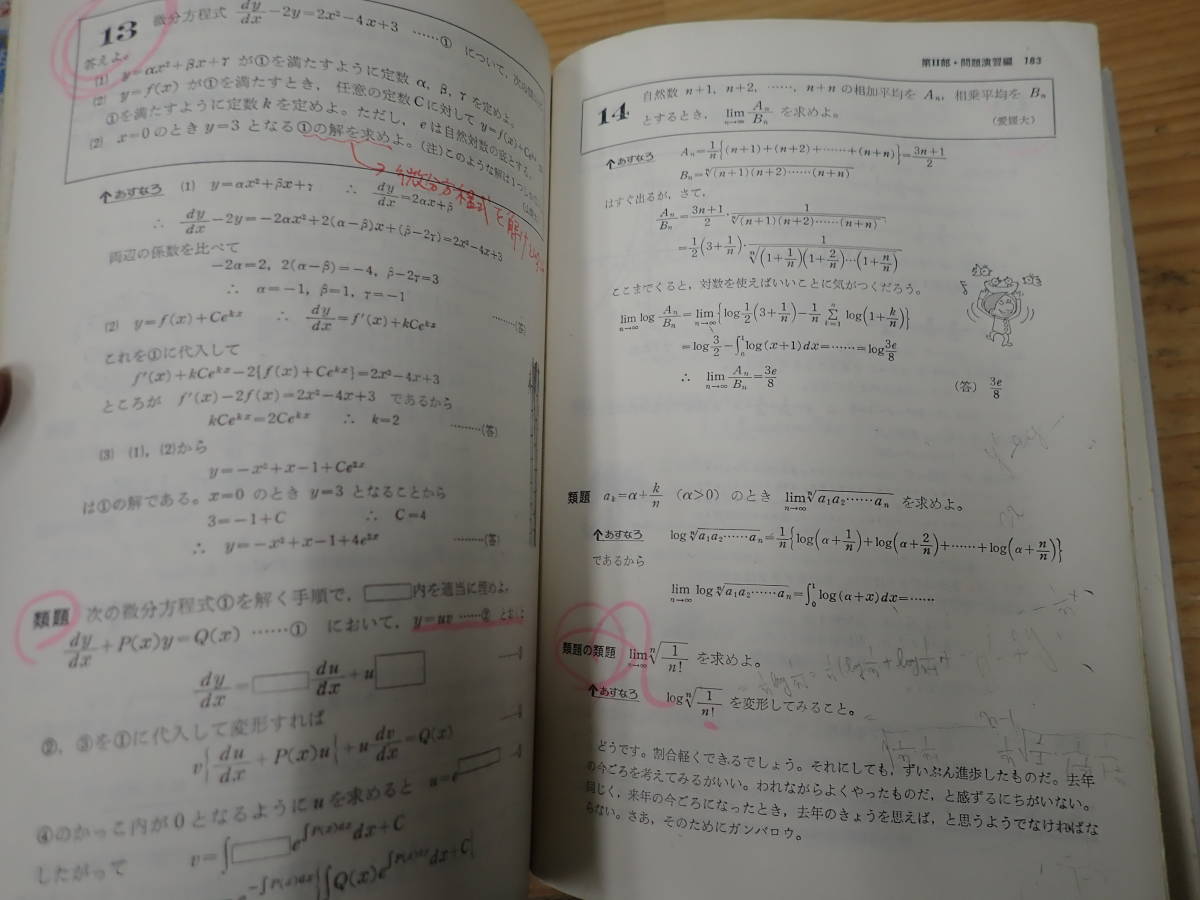 13 微分方程式 dy/dx−2y=2x²−4x+3 ……① について,
答えよ。
(1) y=αx²+βx+γ が①を満たすように定数 α, β, γ を定めよ。
(2) y=f(x) が①を満たすとき, 任意の定数Cに対して y=f(x)+Ce
①を満たすように定数 k を定めよ。ただし, e は自然対数の底とする。
(2) x=0のとき y=3 となる①の解を求めよ。(注)このような解は1つ
微分方程式を解け
↑あすなろ (1) y=αx²+βx+γ ∴ dy/dx=2αx+β
∴ dy/dx−2y=−2αx²+2(α−β)x+(β−2γ)=2x²−4x+3
両辺の係数を比べて
−2α=2, 2(α−β)=−4, β−2γ=3
∴ α=−1, β=1, γ=−1 ………(答)
(2) y=f(x)+Ce^{kx} ∴ dy/dx=f′(x)+kCe^{kx}
これを①に代入して
f′(x)+kCe^{kx}−2{f(x)+Ce^{kx}}=2x²−4x+3
ところが f′(x)−2f(x)=2x²−4x+3 であるから
kCe^{kx}=2Ce^{kx} ∴ k=2 ………(答)
(3) (1), (2)から
y=−x²+x−1+Ce^{2x}
は①の解である。x=0 のとき y=3 となることから
3=−1+C ∴ C=4
∴ y=−x²+x−1+4e^{2x} ………(答)
類題 次の微分方程式①を解く手順で, 内を適当に埋めよ。
dy/dx+P(x)y=Q(x) ……① において, y=uv ……② とおくと
dy/dx= du/dx+u
②, ③を①に代入して変形すれば
v{du/dx+P(x)u}+u dv/dx=Q(x)
④のかっこ内が0となるようにuを求めると u=e
したがって v=∫ e^{∫P(x)dx}dx+C
e^{−∫P(x)dx}{∫Q(x)e^{∫P(x)dx}dx+C}
第II部・問題演習編 183
14 自然数 n+1, n+2, ……, n+n の相加平均を Aₙ, 相乗平均を Bₙ
とするとき, lim_{n→∞} Aₙ/Bₙ を求めよ。 (愛媛大)
↑あすなろ Aₙ=1/n{(n+1)+(n+2)+……+(n+n)}=(3n+1)/2
Bₙ=ⁿ√((n+1)(n+2)……(n+n))
はすぐ出るが, さて,
Aₙ/Bₙ=(3n+1)/2・1/ⁿ√((n+1)(n+2)……(n+n))
=1/2(3+1/n)・1/ⁿ√((1+1/n)(1+2/n)…(1+n/n))
ここまでくると, 対数を使えばいいことに気がつくだろう。
lim_{n→∞} log Aₙ/Bₙ=lim_{n→∞}{log 1/2(3+1/n)−1/n Σ_{i=1}^{n} log(1+k/n)}
=log 3/2−∫₀¹log(x+1)dx=……=log 3e/8
∴ lim_{n→∞} Aₙ/Bₙ=3e/8 (答) 3e/8
類題 aₖ=α+k/n (α>0) のとき lim_{n→∞} ⁿ√(a₁a₂……aₙ) を求めよ。
↑あすなろ log ⁿ√(a₁a₂……aₙ)=1/n{log(α+1/n)+log(α+2/n)+……+log(α+n/n)}
であるから
lim_{n→∞} log ⁿ√(a₁a₂……aₙ)=∫₀¹log(α+x)dx=……
類題の類題 lim_{n→∞} ⁿ√(1/n!) を求めよ。
↑あすなろ log ⁿ√(1/n!) を変形してみること。
どうです。割合軽くできるでしょう。それにしても, ずいぶん進歩したものだ。去年
の今ごろを考えてみるがいい。われながらよくやったものだ, と感ずるにちがいない。
同じく, 来年の今ごろになったとき, 去年のきょうを思えば, と思うようでなければな
らない。さあ, そのためにガンバロウ。